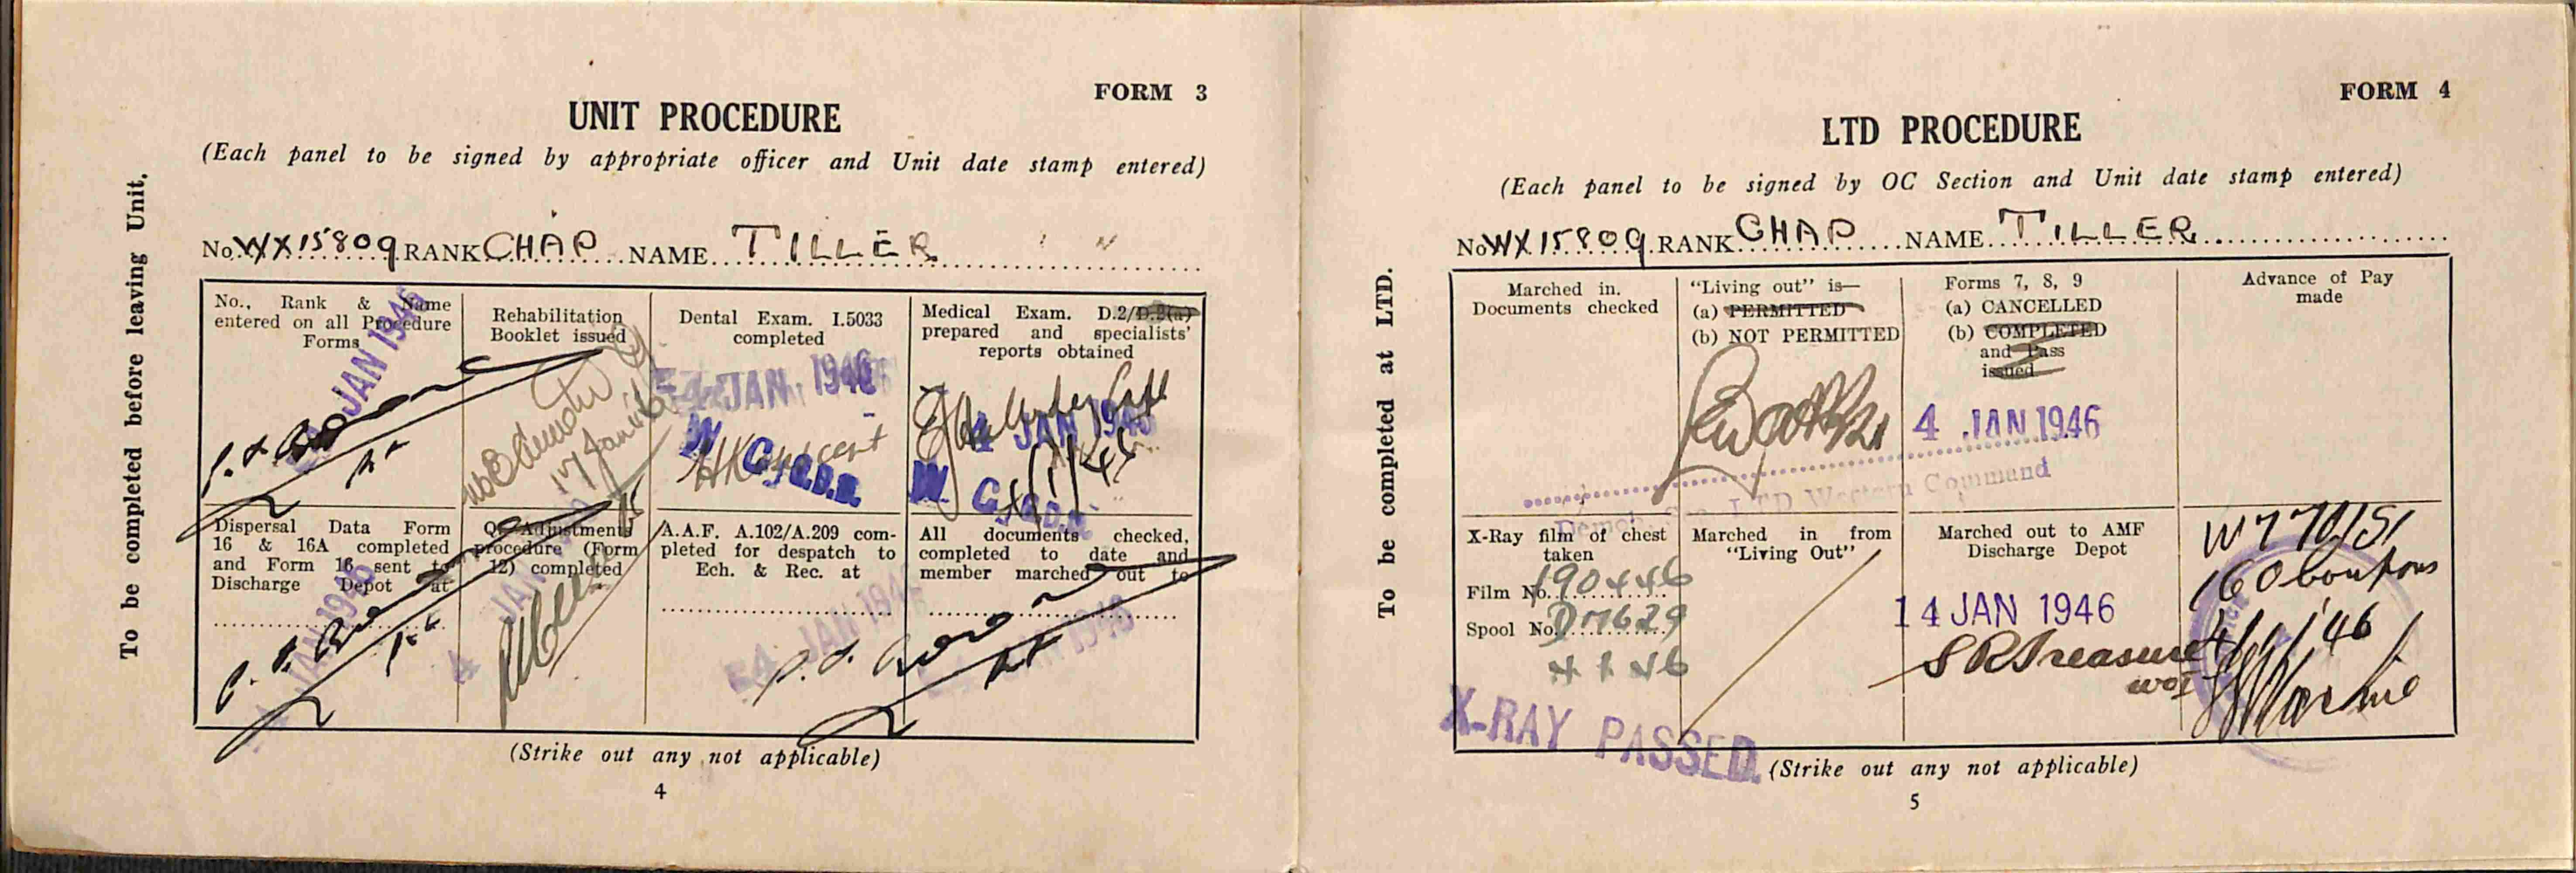 FORM 3
UNIT PROCEDURE
(Each panel to be signed by appropriate officer and Unit date stamp entered)
To be completed before leaving Unit.
No. WX15809 RANK CHAP NAME TILLER
No., Rank & Name
entered on all Procedure
Forms
JAN 1946
Rehabilitation
Booklet issued
17 Jan
Dental Exam. I.5033
completed
4 JAN 1946
W C
Medical Exam. D.2/D.2(a)
prepared and specialists'
reports obtained
4 JAN 1946
W C
4/1/46
Dispersal Data Form
16 & 16A completed
and Form 16 sent to
Discharge Depot at
JAN 1946
Q Adjustments
procedure (Form
12) completed
4 JAN
A.A.F. A.102/A.209 com-
pleted for despatch to
Ech. & Rec. at
4 JAN 194
All documents checked,
completed to date and
member marched out to
JAN 1946
(Strike out any not applicable)
4
FORM 4
LTD PROCEDURE
(Each panel to be signed by OC Section and Unit date stamp entered)
To be completed at LTD.
No WX15809 RANK CHAP NAME TILLER
Marched in.
Documents checked
"Living out" is—
(a) PERMITTED
(b) NOT PERMITTED
Forms 7, 8, 9
(a) CANCELLED
(b) COMPLETED
and Pass
issued
4 JAN 1946
LTD Western Command
Advance of Pay
made
X-Ray film of chest
taken
Film No. 190446
Spool No. D7629
4 1 46
X-RAY PASSED.
Marched in from
"Living Out"
Marched out to AMF
Discharge Depot
14 JAN 1946
S R Treasure
WO1
W77015
160 coupons
4/1/46
(Strike out any not applicable)
5